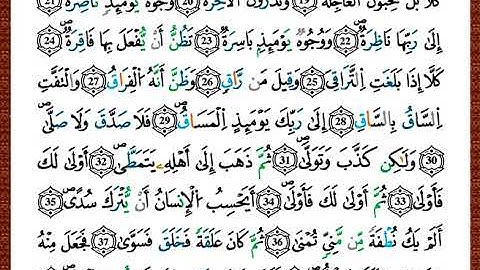 كَلَّا بَلْ تُحِبُّونَ الْعَاجِلَةَ ﴿20﴾ وَتَذَرُونَ الْآخِرَةَ ﴿21﴾ وُجُوهٌ يَوْمَئِذٍ نَاضِرَةٌ
إِلَى رَبِّهَا نَاظِرَةٌ ﴿22﴾ وَوُجُوهٌ يَوْمَئِذٍ بَاسِرَةٌ ﴿23﴾ تَظُنُّ أَن يُفْعَلَ بِهَا فَاقِرَةٌ ﴿24﴾
كَلَّا إِذَا بَلَغَتِ التَّرَاقِيَ ﴿25﴾ وَقِيلَ مَنْ رَاقٍ ﴿26﴾ وَظَنَّ أَنَّهُ الْفِرَاقُ ﴿27﴾ وَالْتَفَّتِ
السَّاقُ بِالسَّاقِ ﴿28﴾ إِلَى رَبِّكَ يَوْمَئِذٍ الْمَسَاقُ ﴿29﴾ فَلَا صَدَّقَ وَلَا صَلَّى
﴿30﴾ وَلَكِن كَذَّبَ وَتَوَلَّى ﴿31﴾ ثُمَّ ذَهَبَ إِلَى أَهْلِهِ يَتَمَطَّى ﴿32﴾ أَوْلَى لَكَ
فَأَوْلَى ﴿33﴾ ثُمَّ أَوْلَى لَكَ فَأَوْلَى ﴿34﴾ أَيَحْسِبُ الْإِنْسَانُ أَن يُتْرَكَ سُدًى ﴿35﴾
أَلَمْ يَكُ نُطْفَةً مِّن مَّنِيٍّ تُمْنَى ﴿36﴾ ثُمَّ كَانَ عَلَقَةً فَخَلَقَ فَسَوَّى ﴿37﴾ فَجَعَلَ مِنْهُ